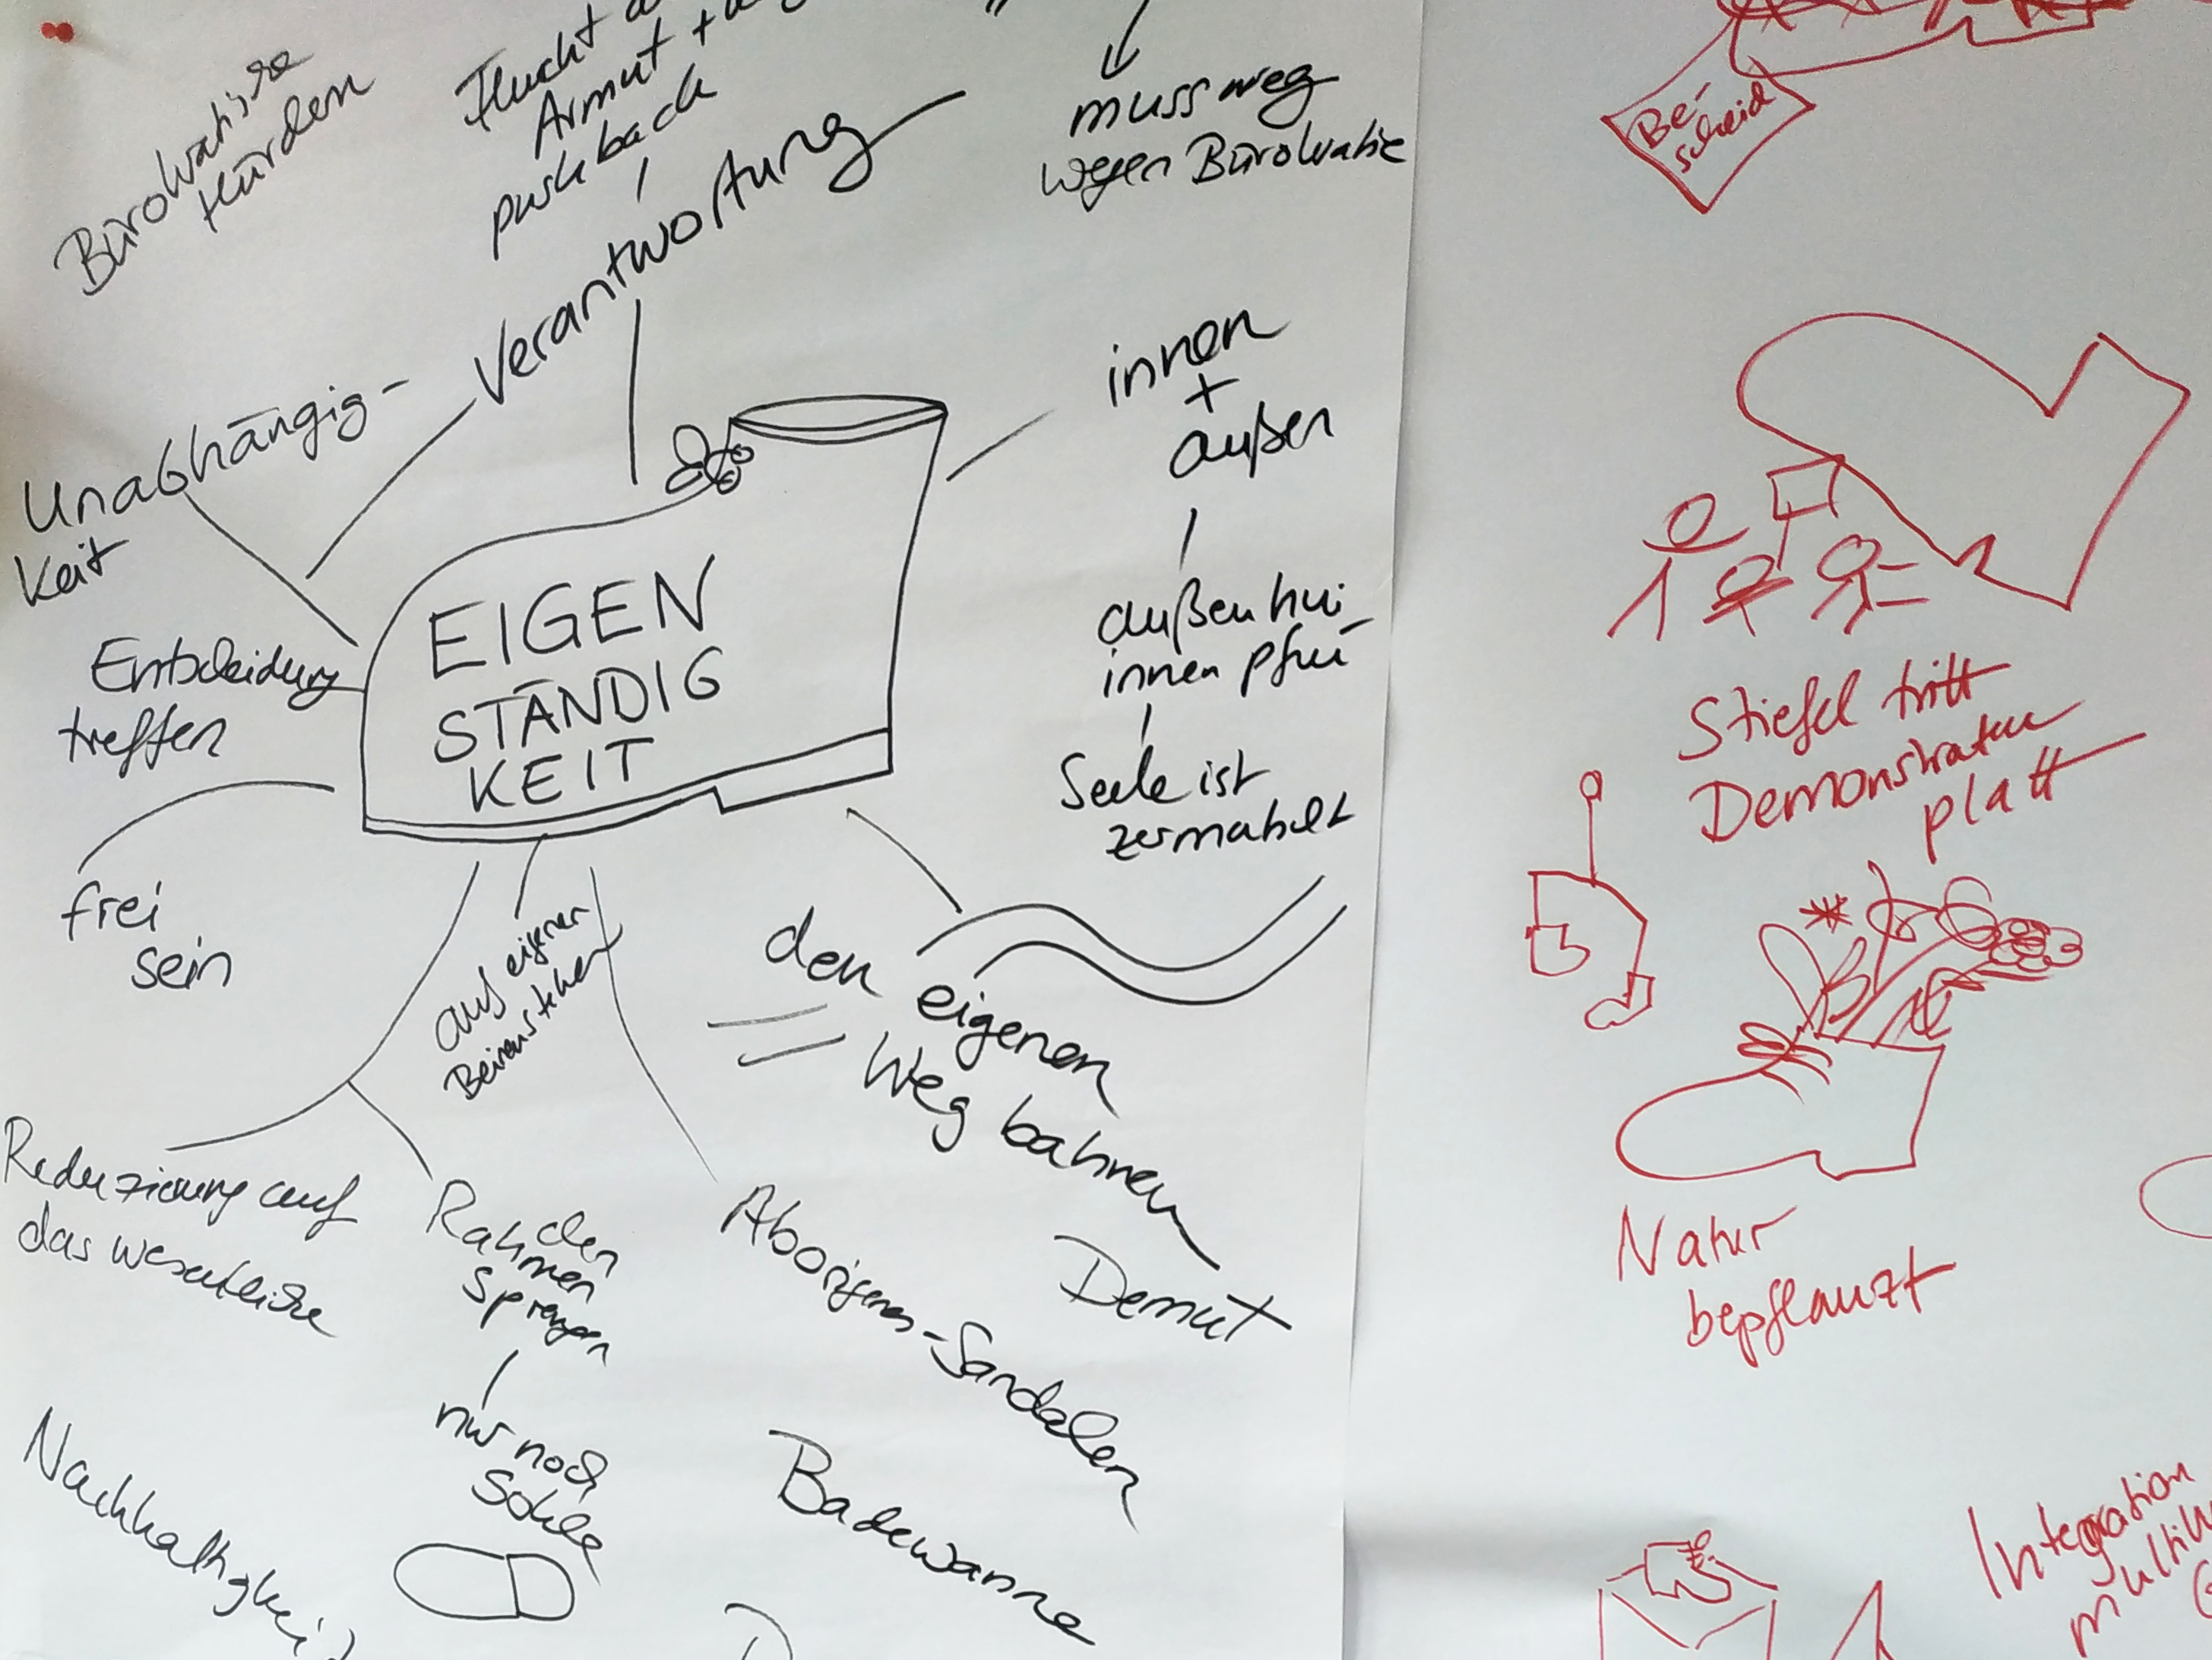 Bürokratische
Hürden
Flucht
Armut +
pushback
Verantwortung
muss weg
wegen Bürokratie
Unabhängig-
keit
innen
+
außen
außen hui
innen pfui
Seele ist
zermahlt
EIGEN
STÄNDIG
KEIT
Entscheidung
treffen
frei
sein
auf eigenen
Beinen stehen
den eigenen
Weg bahnen
Reduzierung auf
das wesentliche
den
Rahmen
sprengen
nur noch
Sohle
Aborigenes-Sandalen
Demut
Badewanne
Nachhaltigkeit
Be-
scheid
Stiefel tritt
Demonstranten
platt
Natur
bepflanzt
Integration